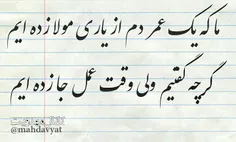 ما که یک عمر دم از یاری مولا زده ایم
گرچه گفتیم ولی وقت عمل جا زده ایم
@mahdavyat